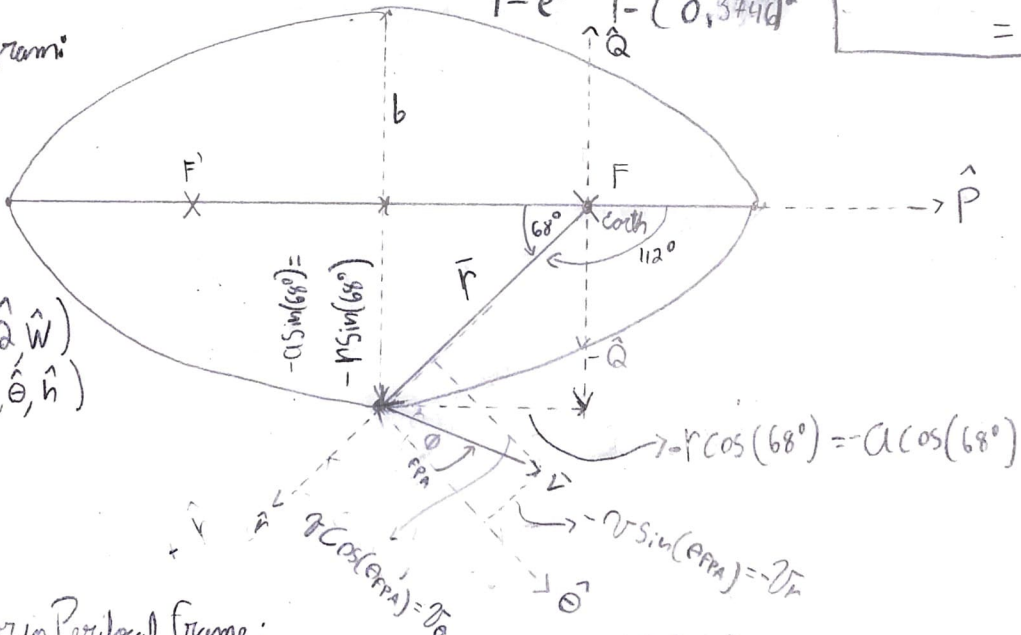 1-e 1-(0,3746)²
=
Q̂
b
F'
F
P̂
68°
Earth
112°
r̄
-a sin(68°)=
-r sin(68°)
Q̂ Ŵ)
Θ̂, ĥ)
-Q̂
-r cos(68°) = -a cos(68°)
Ø
FPA
V̄
r̂
v cos(θFPA) = vθ
-v sin(θFPA) = -vr
Θ̂
in Perifocal frame: